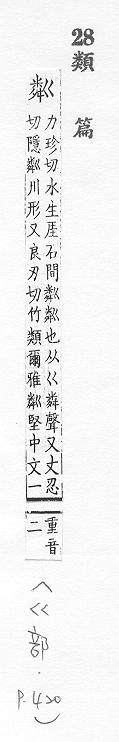 28類篇
粼
力珍切水生厓石間粼粼也从巜粦聲又丈忍
切隱粼川形又良刃切竹類爾雅粼堅中文一
重音
二
(巜部.
P.420)